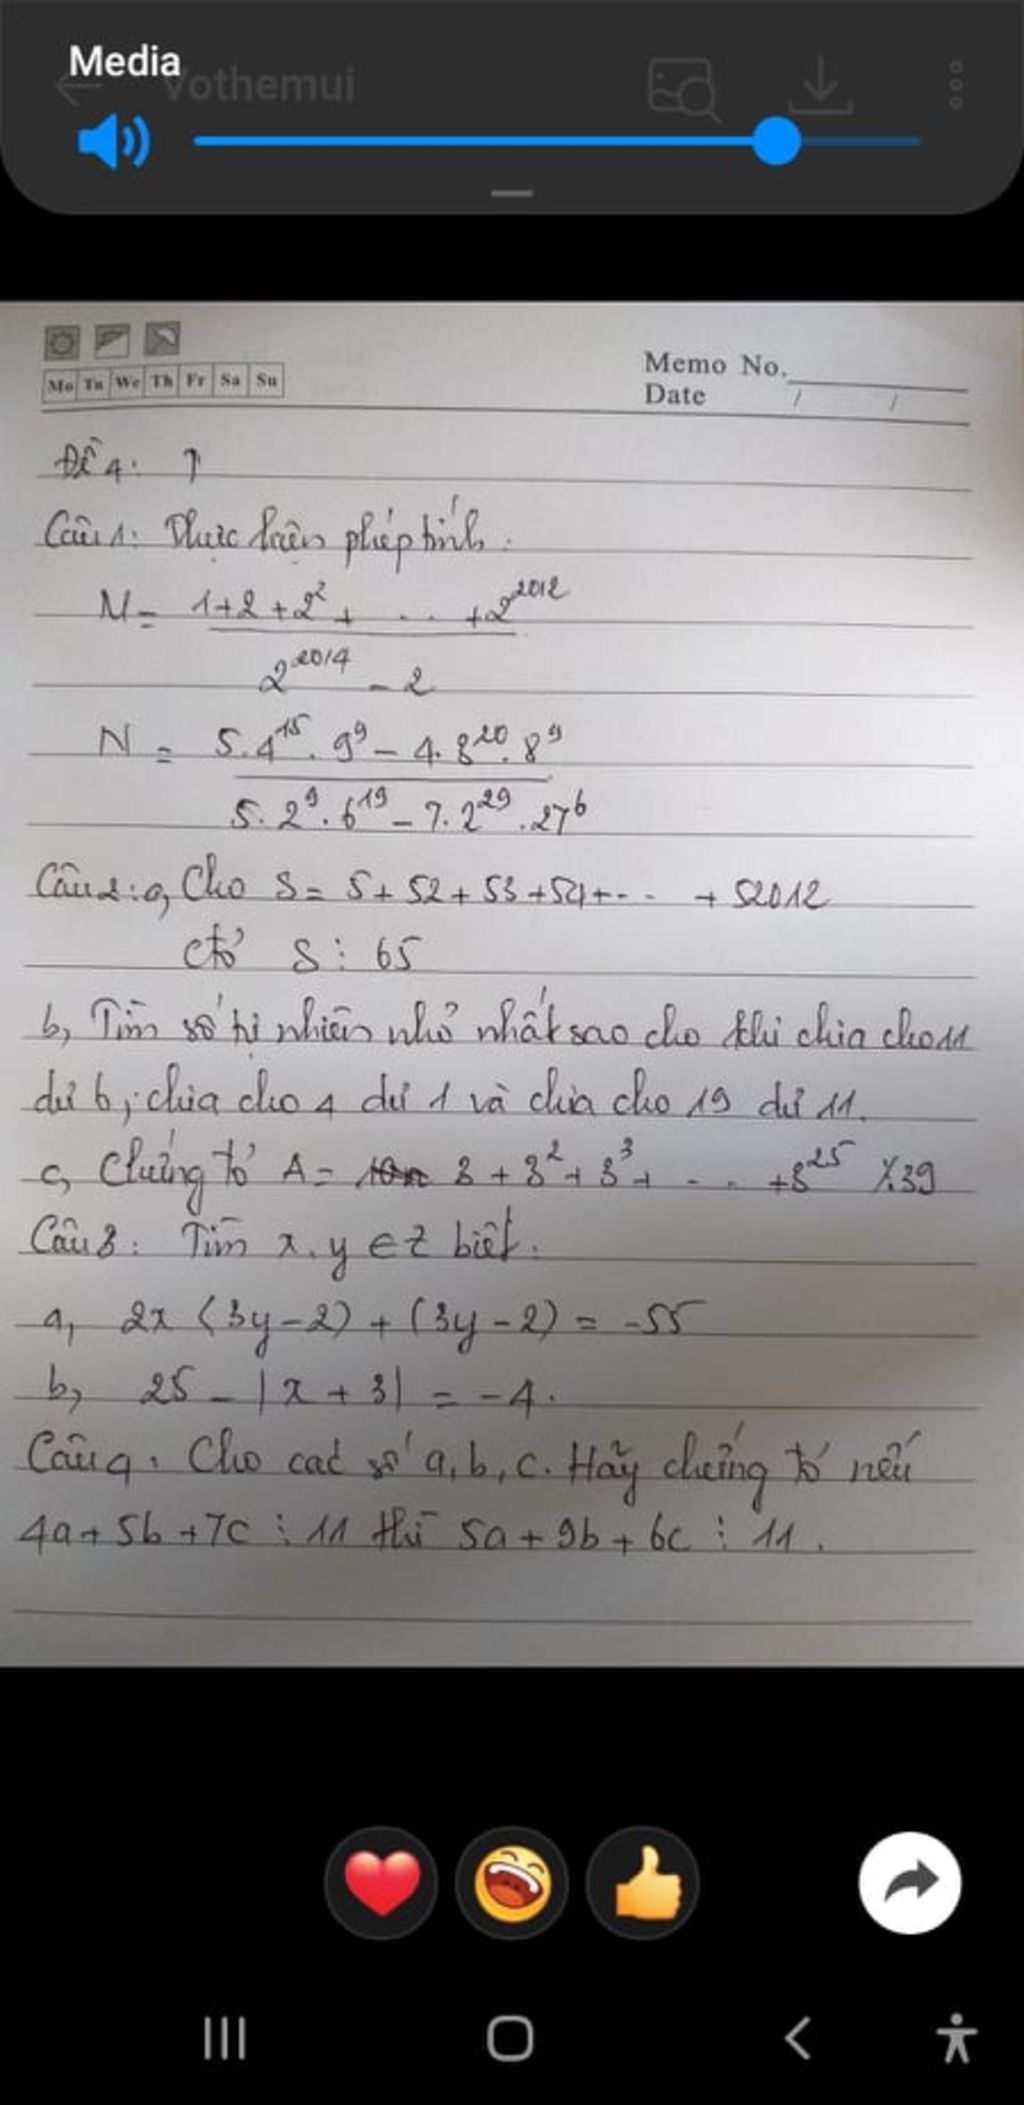 Media
Vothemui
Mo Tu We Th Fr Sa Su
Memo No.
Date / /
Đề 4:
Câu 1: Thực hiện phép tính:
M = 1+2+2² + ... + 2²⁰¹²
2²⁰¹⁴ - 2
N = 5.4¹⁵.9⁹ - 4.3²⁰.8⁹
5.2⁹.6¹⁹ - 7.2²⁹.27⁶
Câu 2: a, Cho S = 5 + 52 + 53 + 54 + ... + 52012
C tỏ S ⋮ 65
b, Tìm số tự nhiên nhỏ nhất sao cho khi chia cho 11
dư 6, chia cho 4 dư 1 và chia cho 19 dư 11.
c, Chứng tỏ A = 3 + 3² + 3³ + ... + 3²⁵ ⋮̸ 39
Câu 3: Tìm x, y ∈ Z biết.
a, 2x (3y - 2) + (3y - 2) = -55
b, 25 - |x + 3| = -4.
Câu 4: Cho các số a, b, c. Hãy chứng tỏ nếu
4a + 5b + 7c ⋮ 11 thì 5a + 9b + 6c ⋮ 11.